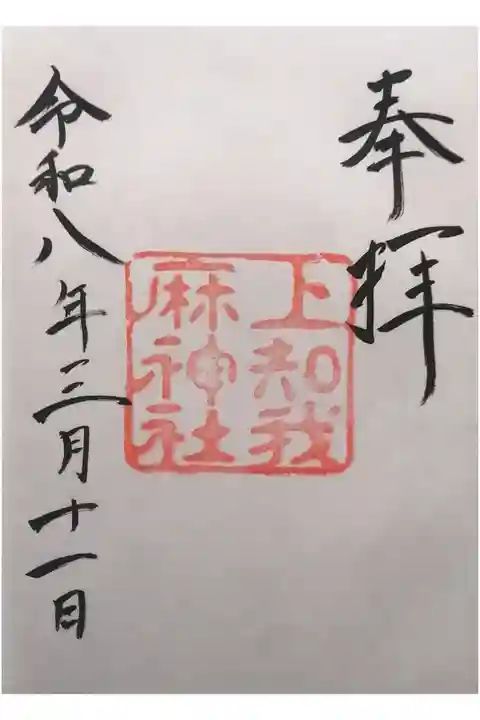 奉拝
上知我
麻神社
令和八年三月十一日